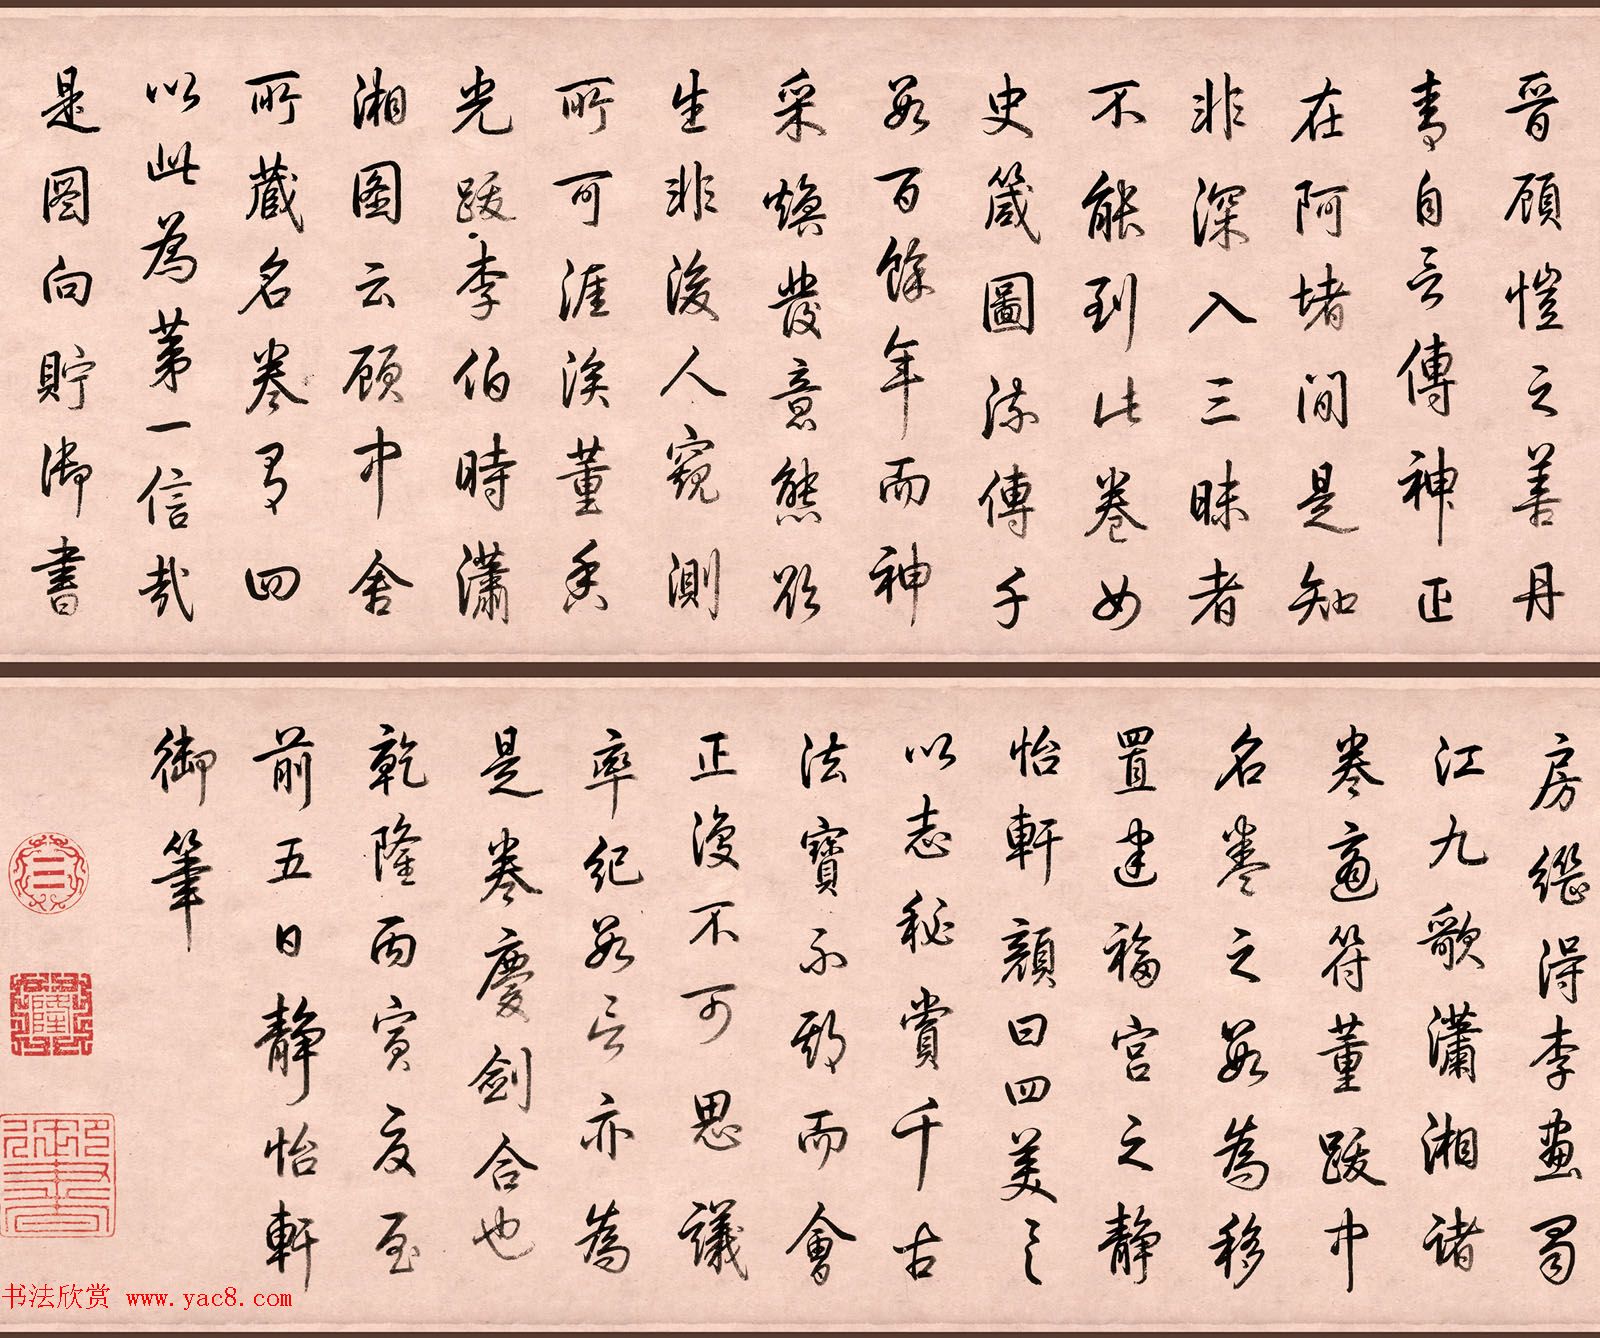 晉顧愷之善丹
青自言傳神正
在阿堵間是知
非深入三昧者
不能到此卷女
史箴圖流傳千
數百餘年而神
采煥發意態欲
生非後人窺測
所可涯涘董香
光跋李伯時瀟
湘圖云顧中舍
所藏名卷有四
以此為第一信哉
是圖向貯御書
房繼得李畫蜀
江九歌瀟湘諸
卷適符董跋中
名卷之數為移
置建福宮之靜
怡軒顏曰四美之
以志秘賞千古
法寶不期而會
正復不可思議
率紀數言亦為
是卷慶劍合也
乾隆丙寅夏至
前五日靜怡軒
御筆
三
乾隆
御書
书法欣赏 www.yac8.com